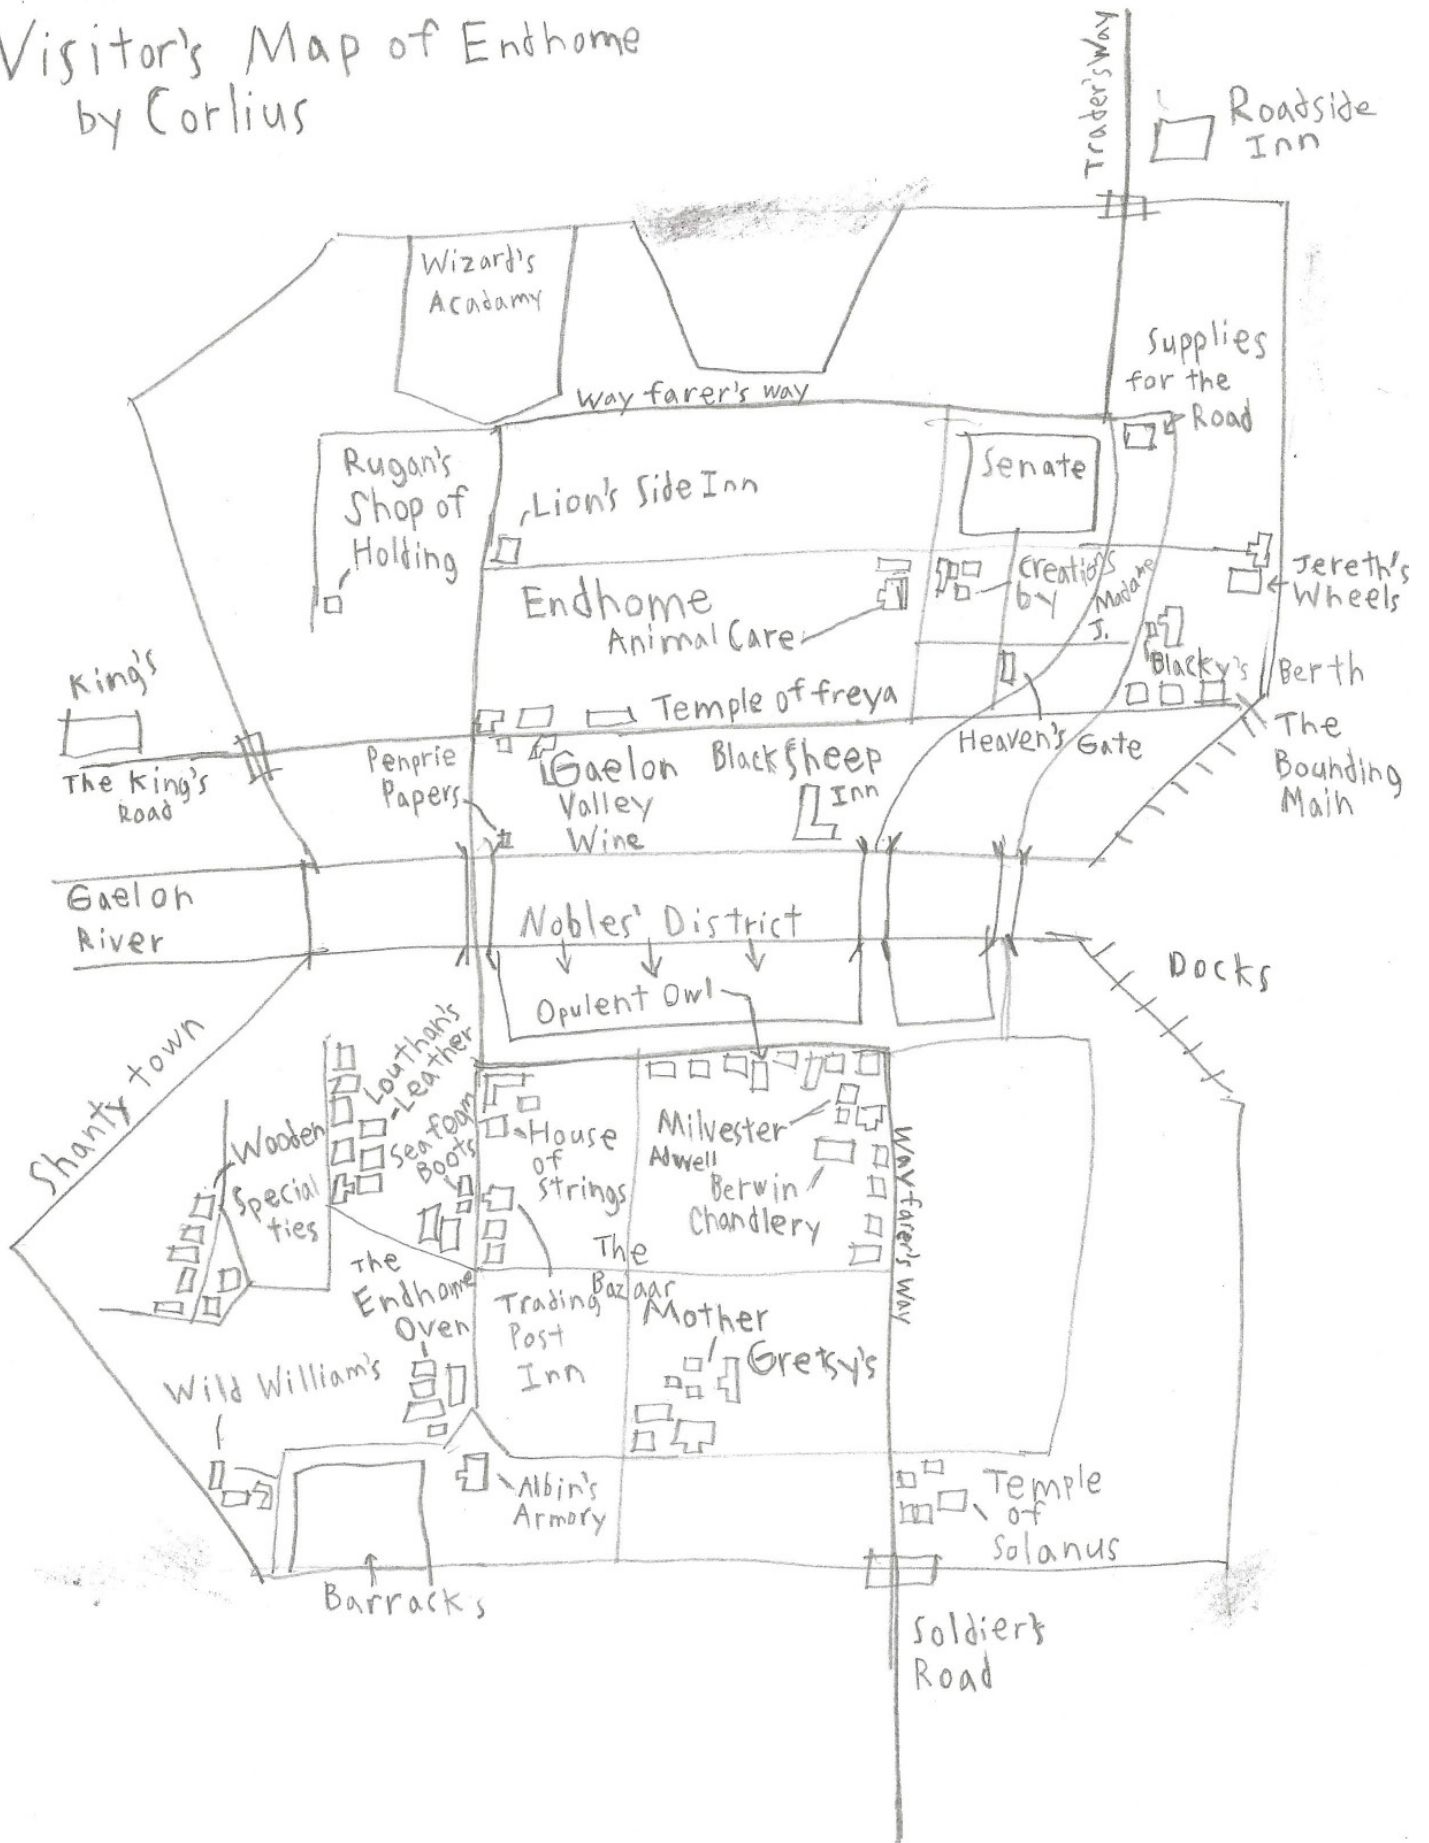 Visitor's Map of Endhome
by Corlius
Trader's Way
Roadside
Inn
Wizard's
Acadamy
Supplies
for the
Road
Way farer's way
Rugan's
Shop of
Holding
Lion's Side Inn
Senate
Endhome
Animal Care
Creations
by
Madame
J.
Jereth's
Wheels
Blacky's
Berth
King's
The King's
Road
Temple of freya
Penprie
Papers
Gaelon
Valley
Wine
Black Sheep
Inn
Heaven's Gate
The
Bounding
Main
Gaelon
River
Nobles' District
Opulent Owl
Docks
Shanty town
Wooden
Special
ties
Louthan's
Leather
Seafoam
Boots
House
of
Strings
Milvester
Adwell
Berwin
Chandlery
Wayfarer's Way
The
Bazaar
The
Endhome
Oven
Trading
Post
Inn
Mother
Gretsy's
Wild William's
Albin's
Armory
Temple
of
Solanus
Barracks
Soldier's
Road